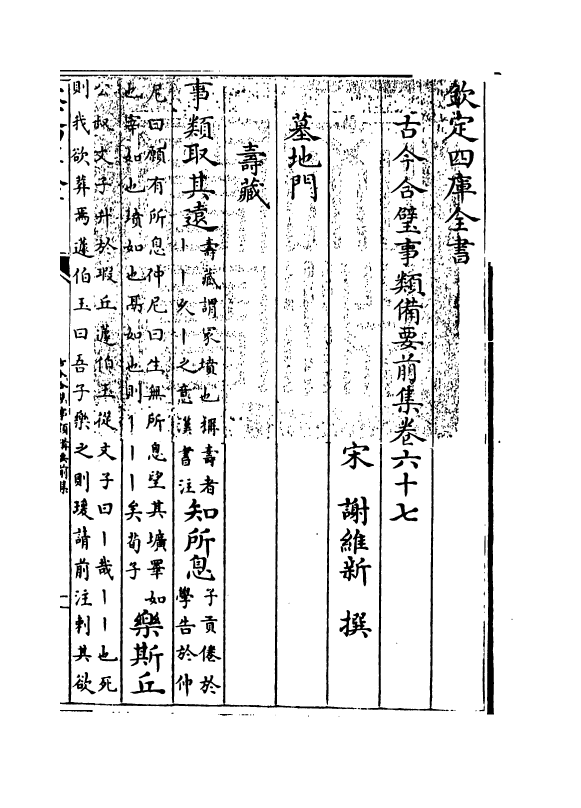 欽定四庫全書
古今合璧事類備要前集卷六十七
宋 謝維新 撰
墓地門
壽藏
事類取其遠壽藏謂冢壙也稱壽者丨丨久丨之意漢書注知所息子貢倦於學告於仲
尼曰願有所息仲尼曰生無所息望其壙睪如也宰如也墳如也鬲如也則丨丨丨矣荀子樂斯丘
公叔文子升於瑕丘蘧伯玉從文子曰丨哉丨丨也死則我欲葬焉蘧伯玉曰吾子樂之則瑗請前注刺其欲